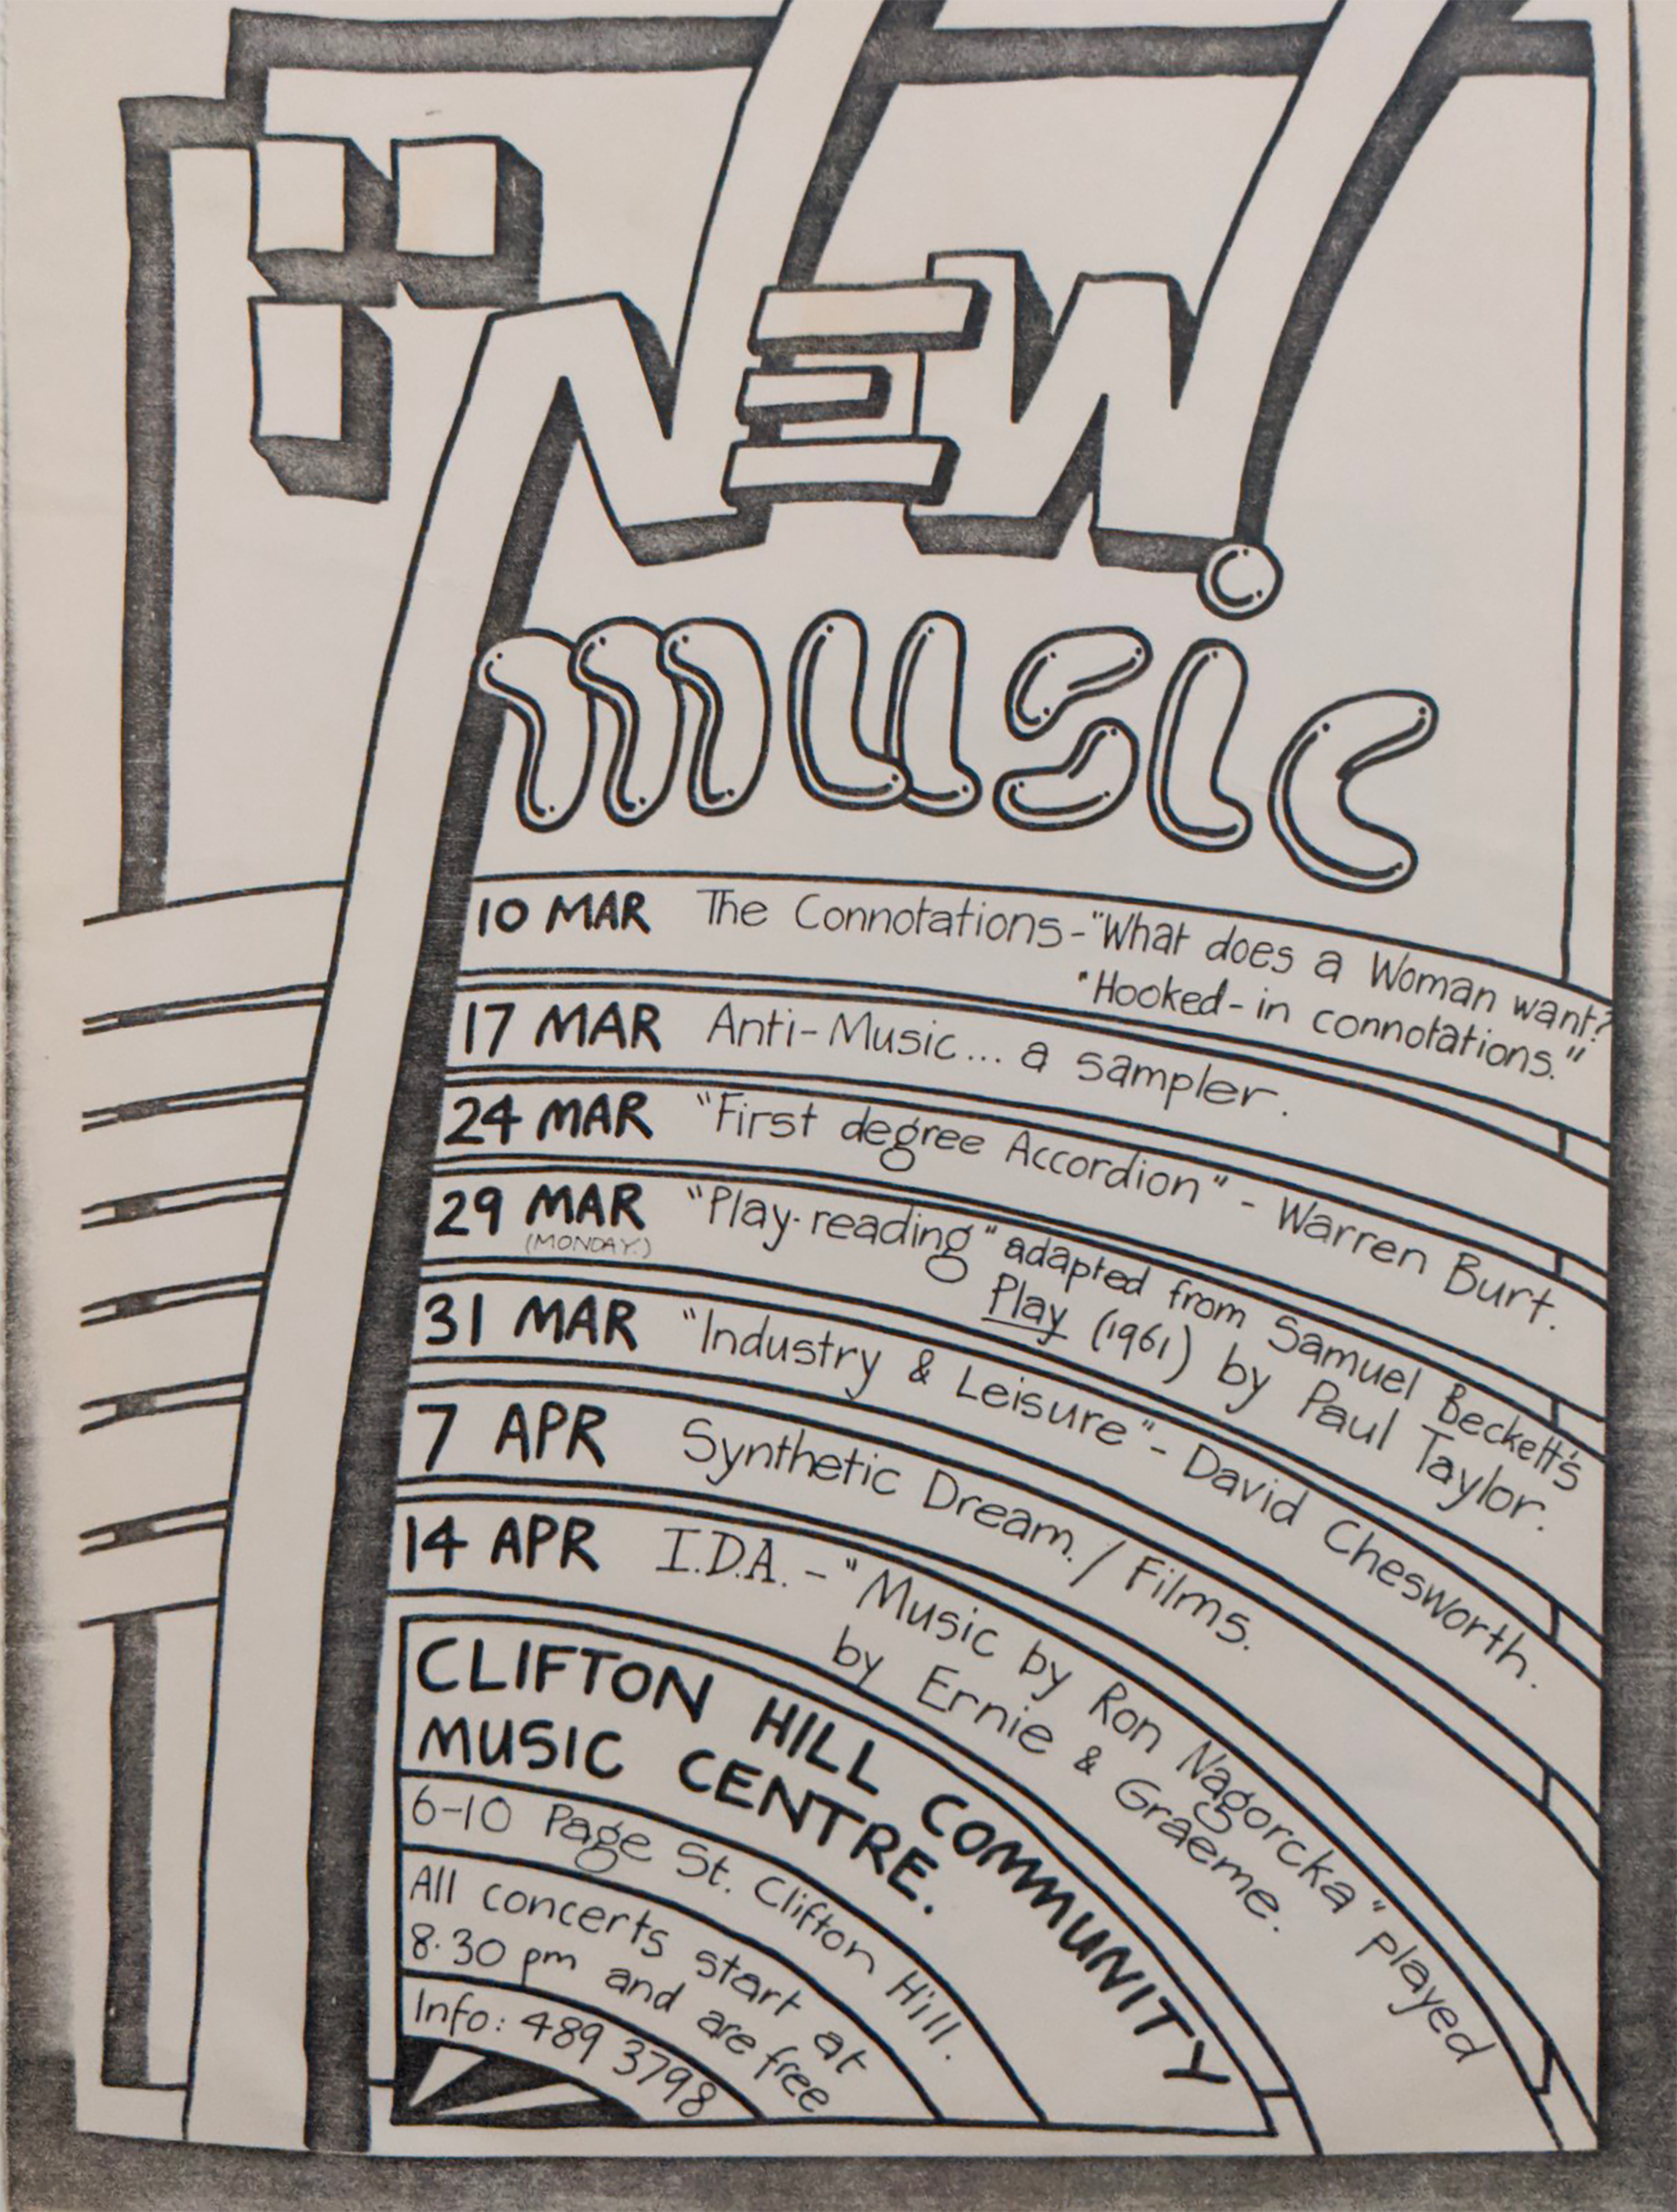 NEW
music
10 MAR The Connotations - "What does a Woman want?
"Hooked-in connotations."
17 MAR Anti-Music... a sampler.
24 MAR "First degree Accordion" - Warren Burt.
29 MAR "Play-reading" adapted from Samuel Beckett's
(MONDAY.) Play (1961) by Paul Taylor.
31 MAR "Industry & Leisure" - David Chesworth.
7 APR Synthetic Dream. / Films.
14 APR I.D.A. - "Music by Ron Nagorcka" played
by Ernie & Graeme.
CLIFTON HILL COMMUNITY
MUSIC CENTRE.
6-10 Page St. Clifton Hill.
All concerts start at
8.30 pm and are free
Info: 489 3798